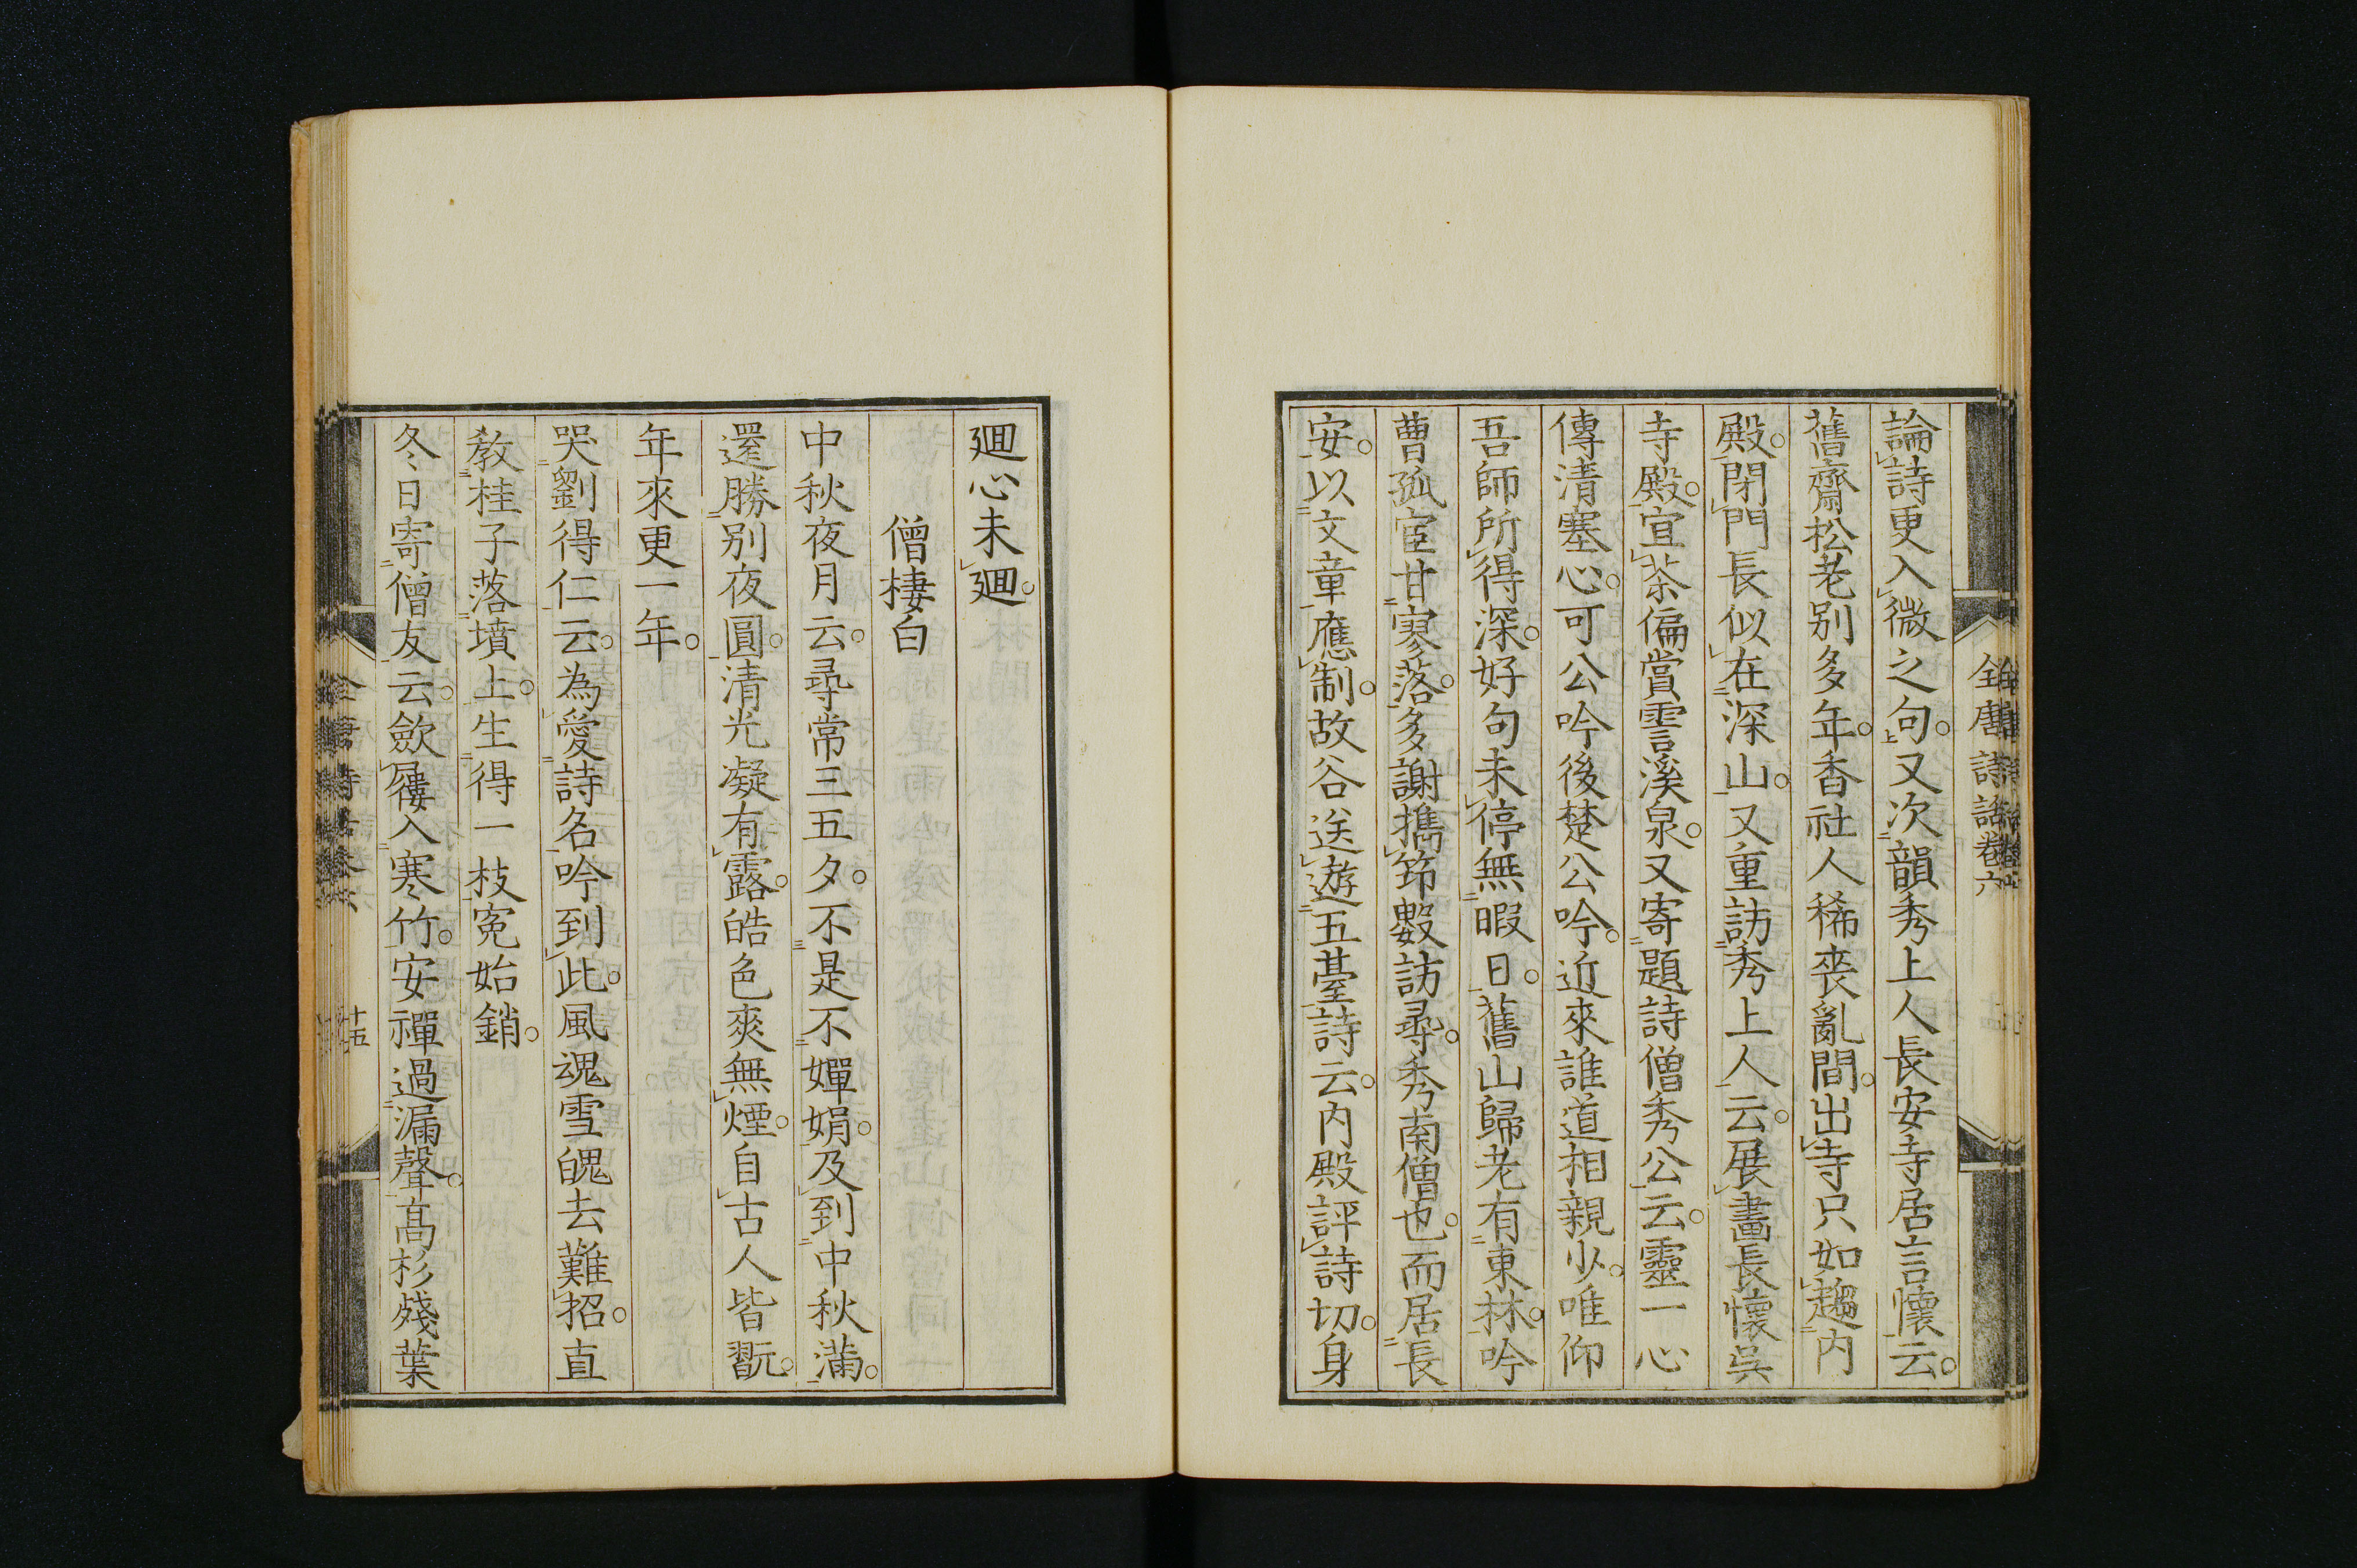 全唐詩話卷六
論詩更入微之句。又次韻秀上人長安寺居言懷云。
舊齋松老別多年。香社人稀喪亂間。出寺只如趨內
殿。閉門長似在深山。又重訪秀上人云。展畫長懷吳
寺殿。宜茶偏賞霅溪泉。又寄題詩僧秀公云。靈一心
傳清塞心。可公吟後楚公吟。近來誰道相親少。唯仰
吾師所得深。好句未停無暇日。舊山歸老有東林。吟
曹孤宦甘寥落。多謝攜筇數訪尋。秀南僧也。而居長
安。以文章應制。故谷送遊五臺詩云。內殿評詩切。身
廻心未廻。
僧棲白
中秋夜月云。尋常三五夕。不是不嬋娟。及到中秋滿。
還勝別夜圓。清光凝有露。皓色爽無煙。自古人皆翫。
年來更一年。
哭劉得仁云。為愛詩名吟到此。風魂雪魄去難招。直
教桂子落墳上。生得一枝寃始銷。
冬日寄僧友云。斂屨入寒竹。安禪過漏聲。高杉殘葉
全唐詩話卷六
十五